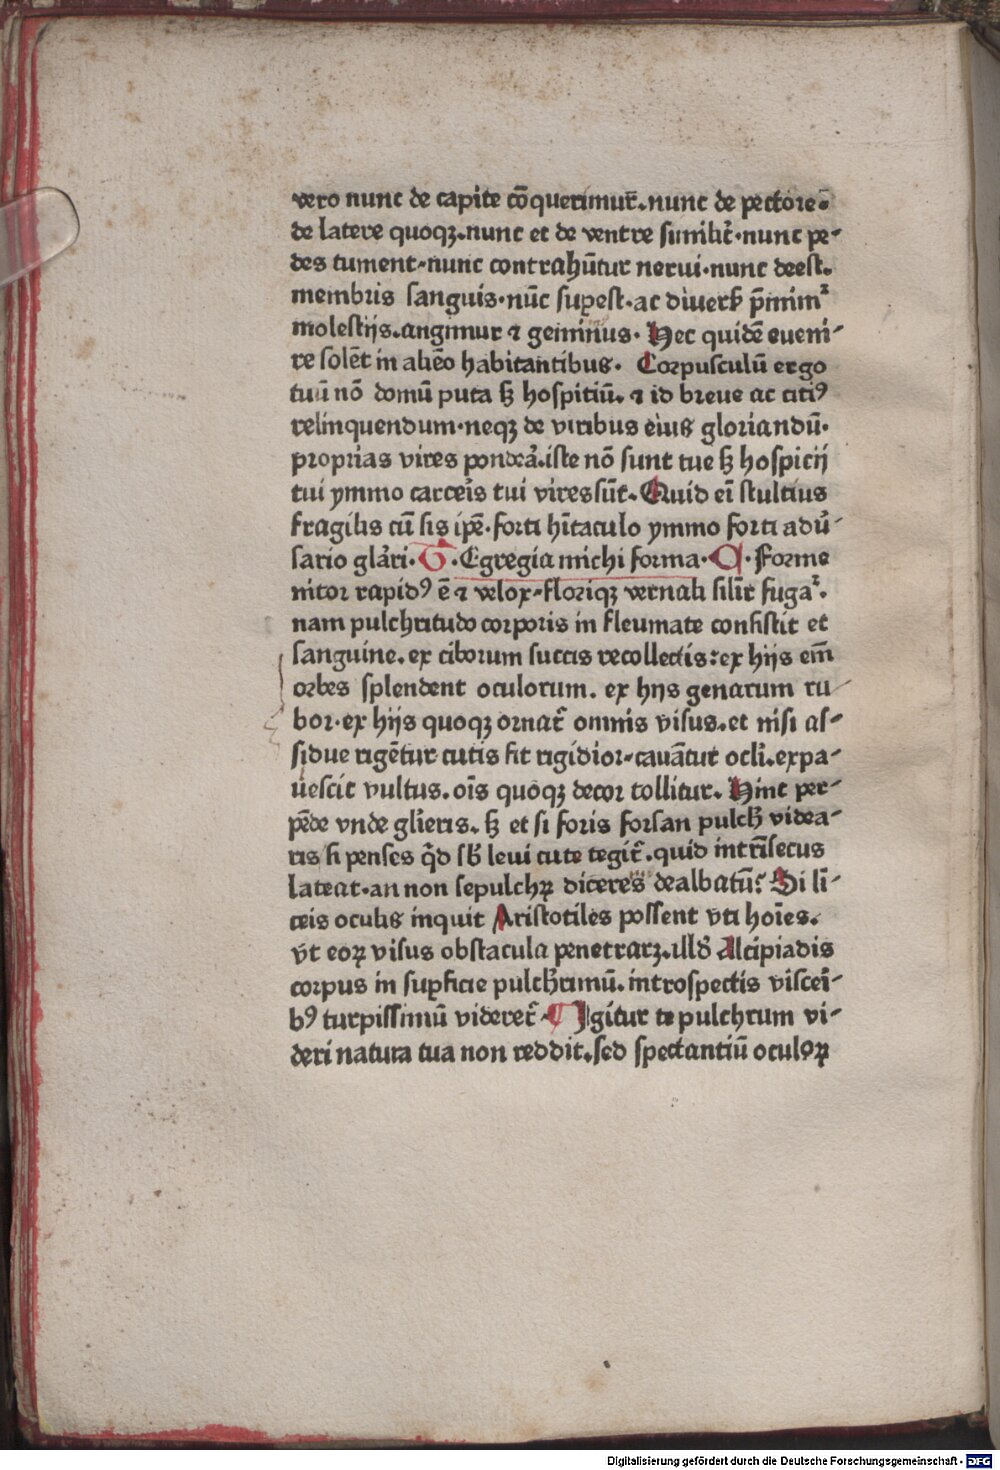 vero nunc de capite cōquerimur̄.nunc de pectore.
de latere quoqꝫ.nunc et de ventre simlit̄.nunc pe-
des tument.nunc contrahūtur nerui.nunc deest.
membris sanguis.nūc suꝑest.ac diuerẜ p̄mimꝰ
molestijs.angimur ⁊ geminus. Hec quidē eueni-
re solēt in aliēo habitantibus. Corpusculū ergo
tuū nō domū puta sꝫ hospitiū. ⁊ id breue ac citiꝰ
relinquendum.neqꝫ de viribus eius gloriandū.
proprias vires ponderā.iste nō sunt tue sꝫ hospicij
tui ymmo carceris tui vires sūt. Quid ei stultius
fragilis cū sis ipē.forti hītaculo ymmo forti adū-
sario glāri. G. Egregia michi forma. R. Forme
nitor rapidꝰ ē ⁊ velox.floriqꝫ vernali silīr fuga.
nam pulchritudo corporis in fleumate consistit et
sanguine.ex ciborum succis recollectis:ex hijs em̄
orbes splendent oculorum. ex hijs genarum ru
bor.ex hijs quoqꝫ ornat̄ omnis visus.et nisi as-
sidue rigētur cutis fit rigidior.cauātur ocli.expa-
uescit vultus.oīs quoqꝫ decor tollitur. Hinc per-
pēde vnde glieris. sꝫ et si foris forsan pulchꝫ videa-
ris si penses qd̄ sb̄ leui cute tegit̄.quid intrīsecus
lateat.an non sepulchꝝ diceres dealbatū? Si lī-
ceis oculis inquit Aristotiles possent vti hoīes.
vt eoꝝ visus obstacula penetrarꝫ.illd̄ Alcipiadis
corpus in suꝑficie pulchrimū.introspectis viscei-
bꝰ turpissimū videret̄. Igitur te pulchrum vi-
deri natura tua non reddit.sed spectantiū oculoꝝ
Digitalisierung gefördert durch die Deutsche Forschungsgemeinschaft - DFG